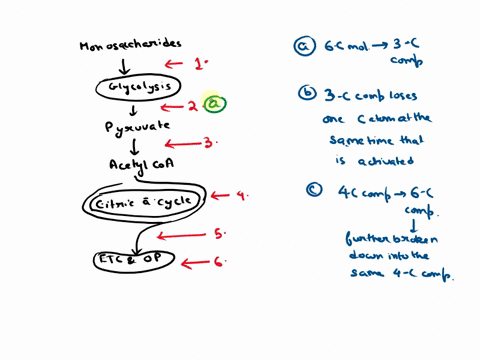 Monosaccharides
1.
Glycolysis
2 a
Pyruvate
3.
Acetyl CoA
Citric a cycle
4.
5.
ETC & OP
6.
a 6C mol → 3-C
comp
b 3-C comp loses
one C atom at the
same time that
is activated
c 4C comp → 6-C
comp.
further broken
down into the
same 4-C comp.